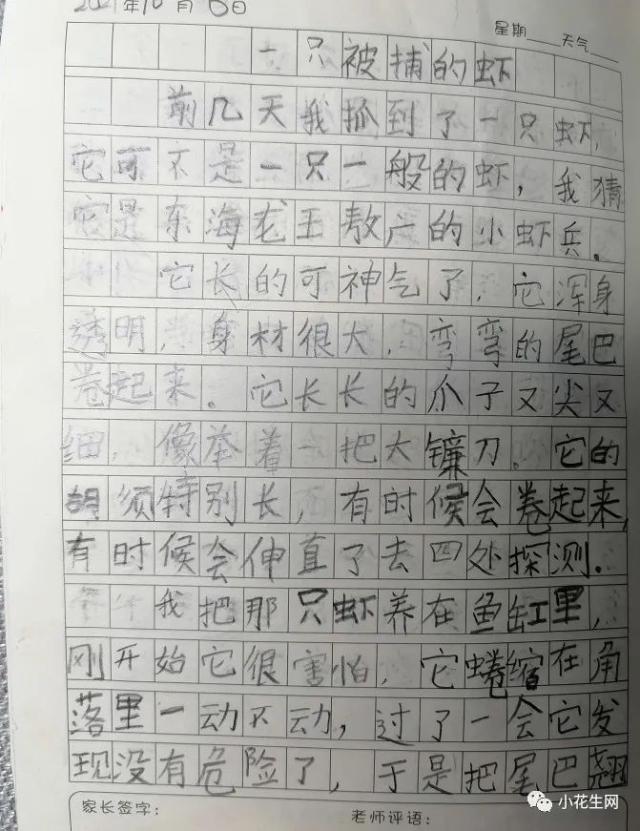 2021年10月6日
星期 天气
一只被捕的虾
前几天我抓到了一只虾,
它可不是一只一般的虾,我猜
它是东海龙王敖广的小虾兵。
它长的可神气了,它浑身
透明,身材很大,弯弯的尾巴
卷起来。它长长的爪子又尖又
细,像举着一把大镰刀。它的
胡须特别长,有时候会卷起来,
有时候会伸直了去四处探测.
我把那只虾养在鱼缸里,
刚开始它很害怕,它蜷缩在角
落里一动不动,过了一会它发
现没有危险了,于是把尾巴翘
家长签字: 老师评语:
小花生网